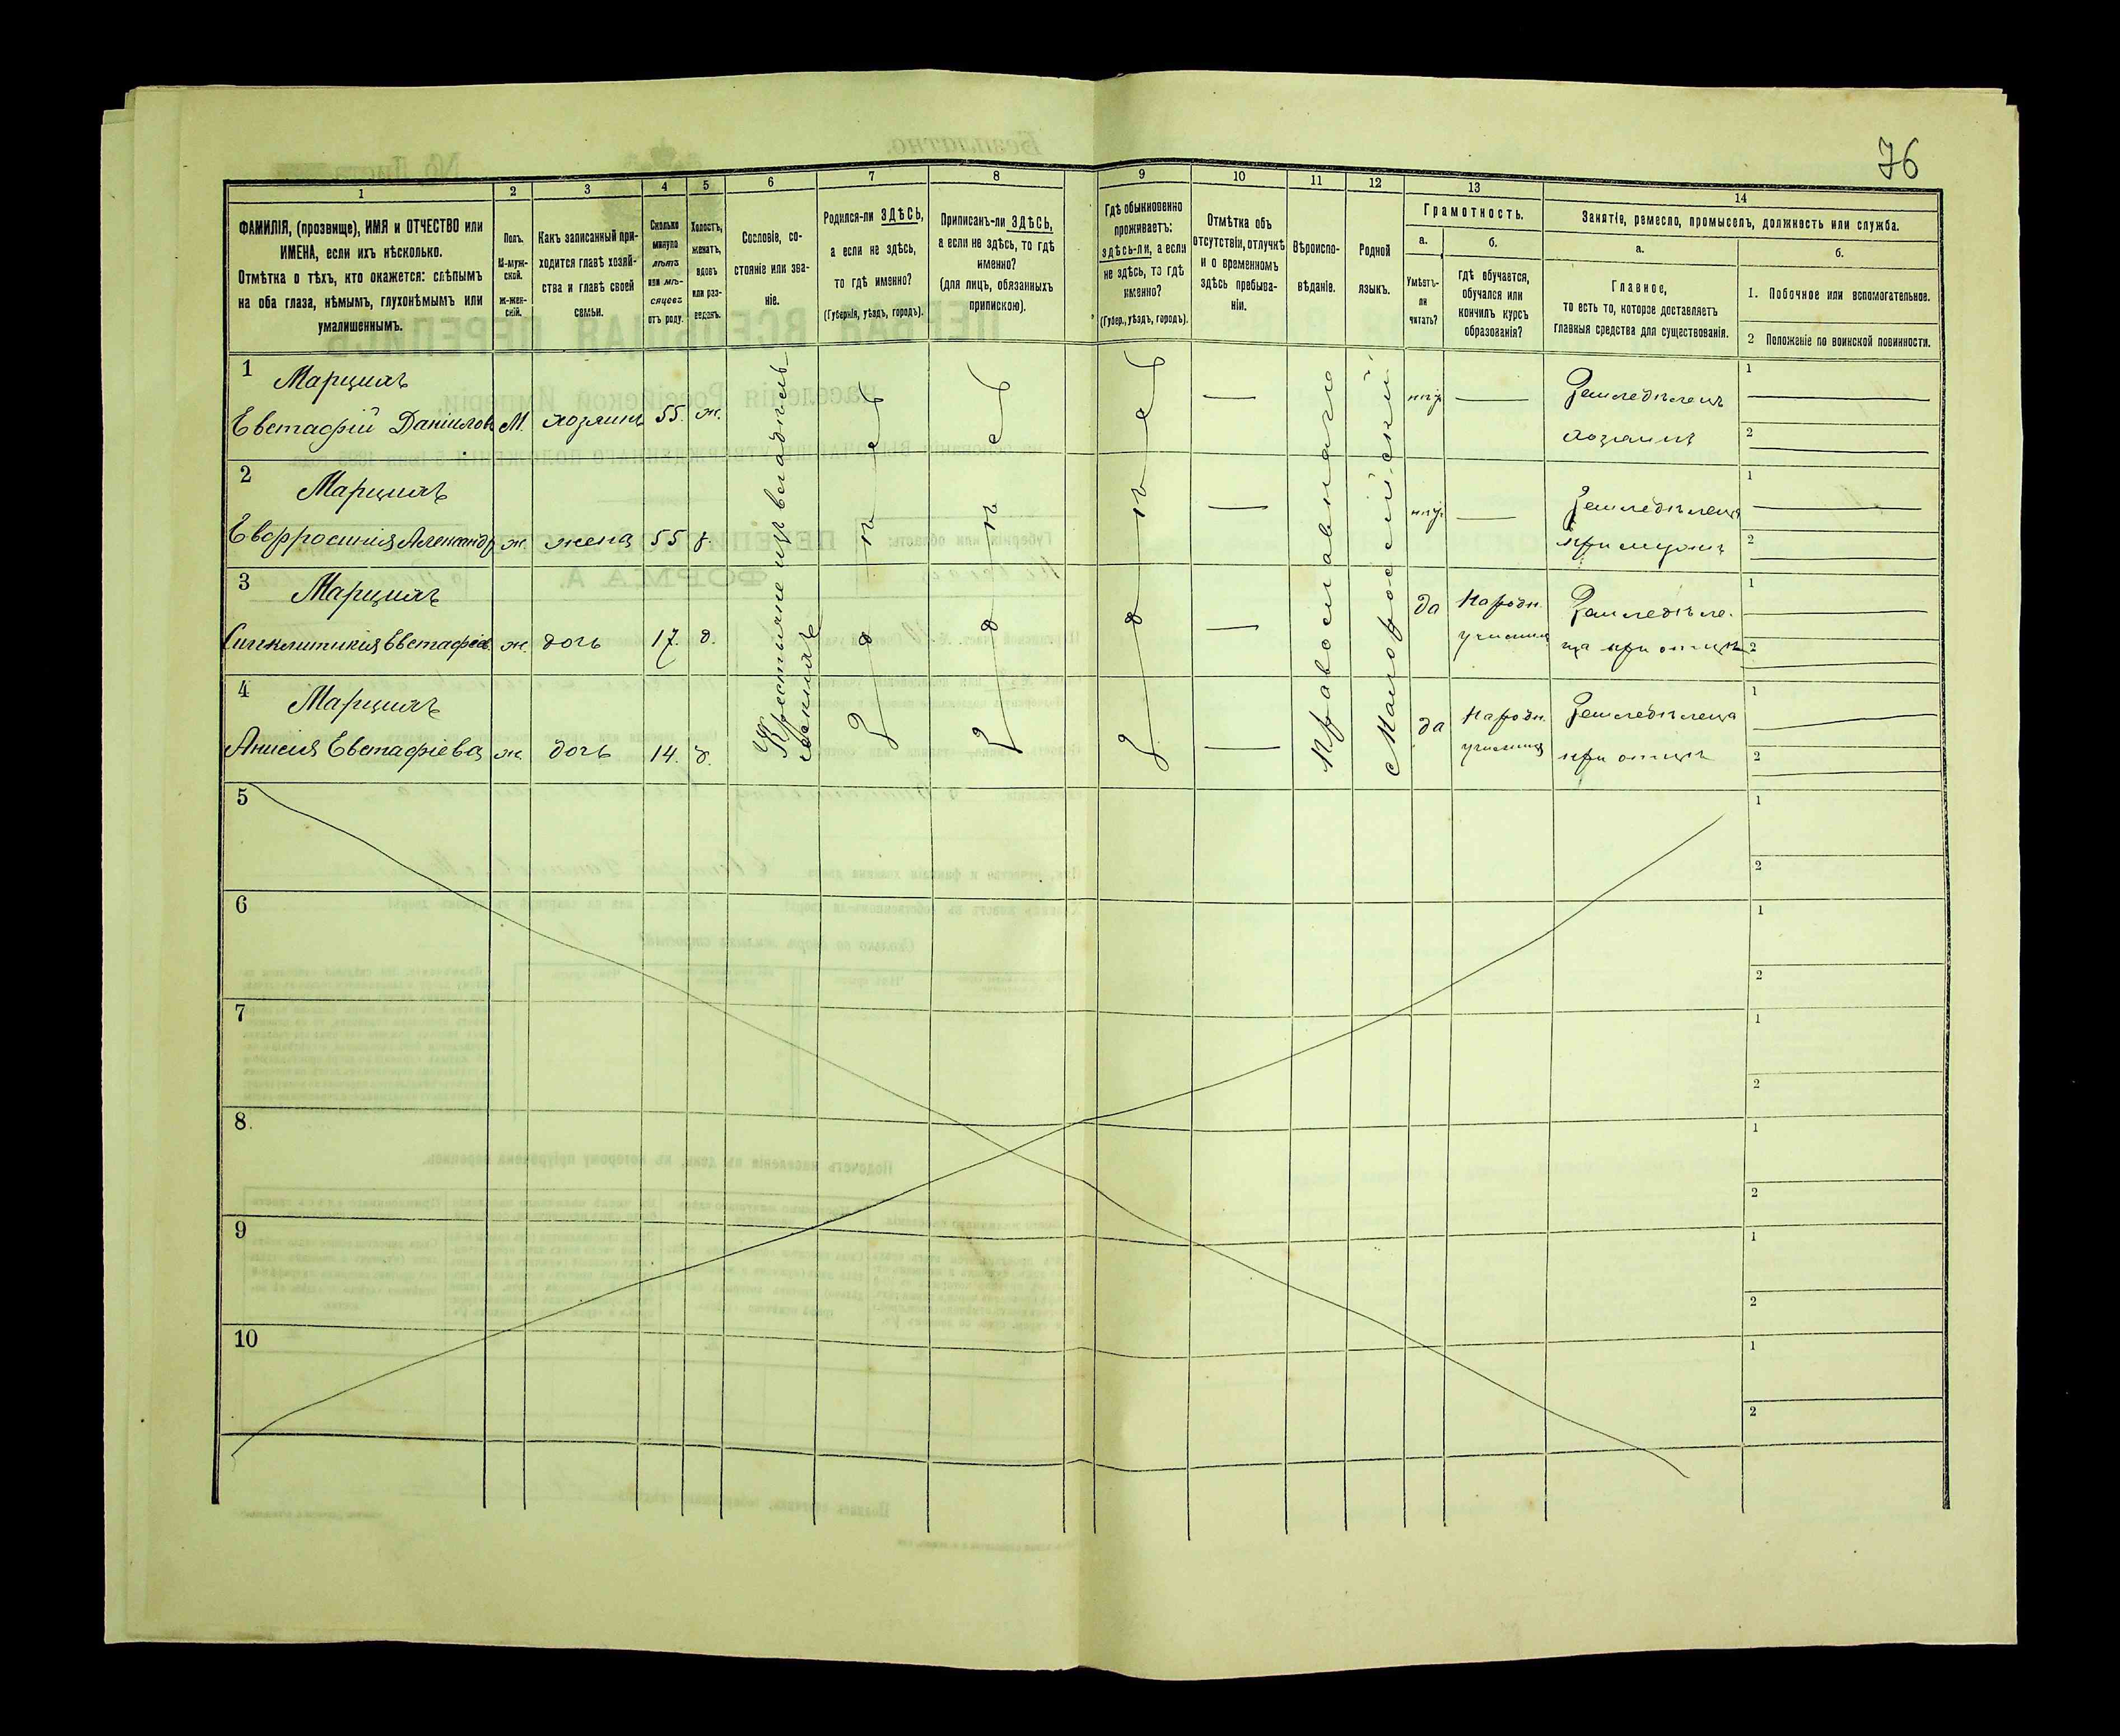 76
1
2
3
4
5
6
7
8
9
10
11
12
13
14
ФАМИЛІЯ, (прозвище), ИМЯ и ОТЧЕСТВО или
ИМЕНА, если ихъ нѣсколько.
Отмѣтка о тѣхъ, кто окажется: слѣпымъ
на оба глаза, нѣмымъ, глухонѣмымъ или
умалишеннымъ.
Полъ.
М-муж-
ской.
ж-жен-
скій.
Какъ записанный при-
ходится главѣ хозяй-
ства и главѣ своей
семьи.
Сколько
минуло
лѣтъ
или мѣ-
сяцевъ
отъ роду.
Холостъ,
женатъ,
вдовъ
или раз-
веденъ.
Сословіе, со-
стояніе или зва-
ніе.
Родился-ли ЗДѢСЬ,
а если не здѣсь,
то гдѣ именно?
(Губернія, уѣздъ, городъ).
Приписанъ-ли ЗДѢСЬ,
а если не здѣсь, то гдѣ
именно?
(для лицъ, обязанныхъ
припискою).
Гдѣ обыкновенно
проживаетъ:
здѣсь-ли, а если
не здѣсь, то гдѣ
именно?
(Губер., уѣздъ, городъ).
Отмѣтка объ
отсутствіи, отлучкѣ
и о временномъ
здѣсь пребыва-
ніи.
Вѣроиспо-
вѣданіе.
Родной
языкъ.
Грамотность.
а.
Умѣетъ-
ли
читать?
б.
гдѣ обучается,
обучался или
кончилъ курсъ
образованія?
Занятіе, ремесло, промыселъ, должность или служба.
а.
Главное,
то есть то, которое доставляетъ
главныя средства для существованія.
б.
1. Побочное или вспомогательное.
2 Положеніе по воинской повинности.
1 Марциял
Евстафій Даніилов М. хозяинъ 55. ж. Земледѣлецъ
хозяинъ
1
2
2 Марциял
Евфросинія Александр ж. жена 55 Земледѣлец
при мужѣ
1
2
3 Марциял
Синклитикія Евстафіев. ж. дочь 17. д. да Народн.
училищ Земледѣле-
ца при отцѣ
1
2
4 Марциял
Анисія Евстафіева ж. дочь 14. д. да Народн.
училищ Земледѣлеца
при отцѣ
1
2
Крестьяне изъ
здѣсь
здѣсь
здѣсь
Православнаго
Малороссійскій
5
1
2
6
1
2
7
1
2
8.
1
2
9
1
2
10
1
2